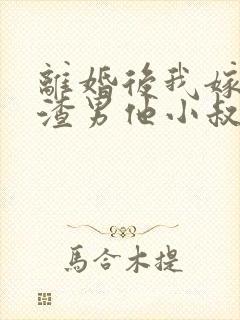 離婚後我嫁
渣男他小叔
馬合木提